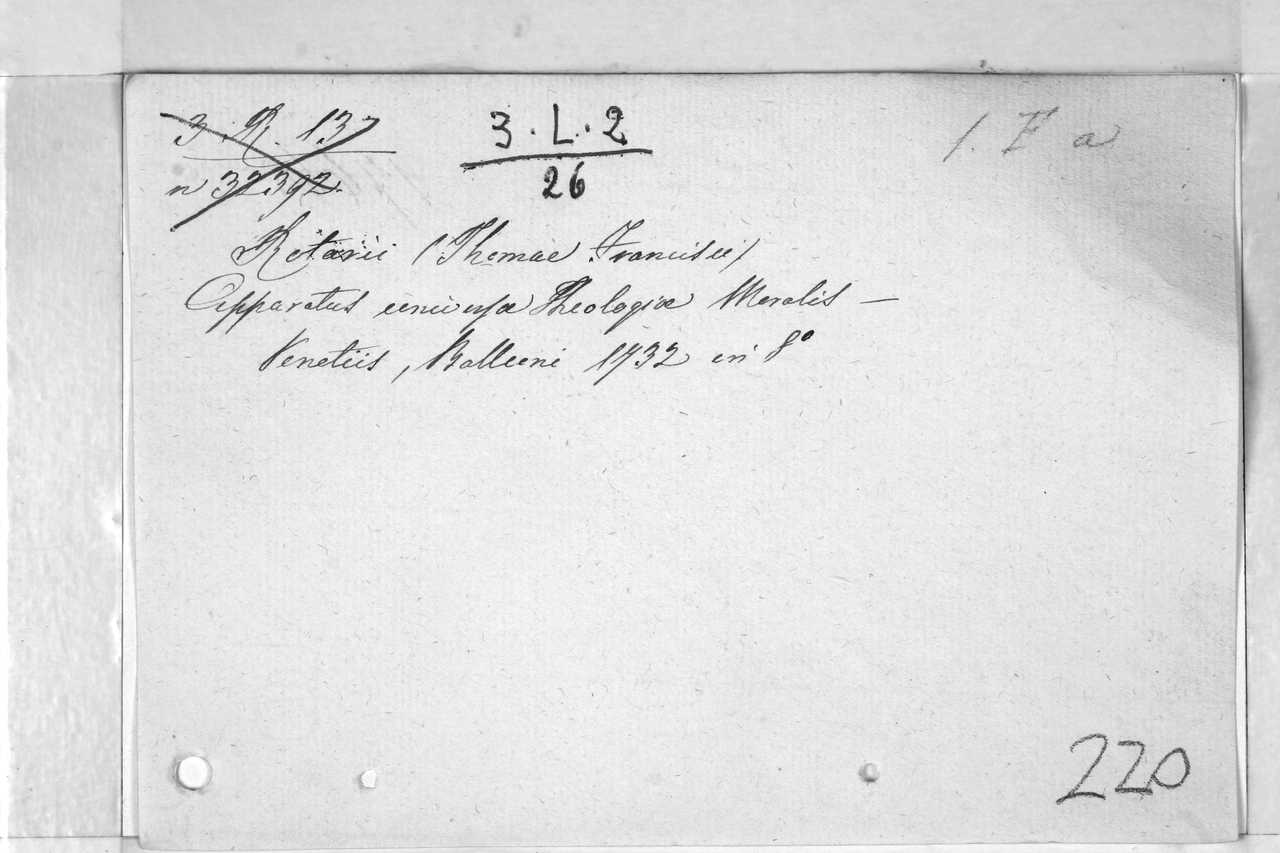 3. R. 137
n 32392.
3 . L . 2
26
1. F a
Rotarii (Thomae Francisci)
Apparatus universæ Theologiæ Moralis —
Venetiis, Balleoni 1732 in 8º
220